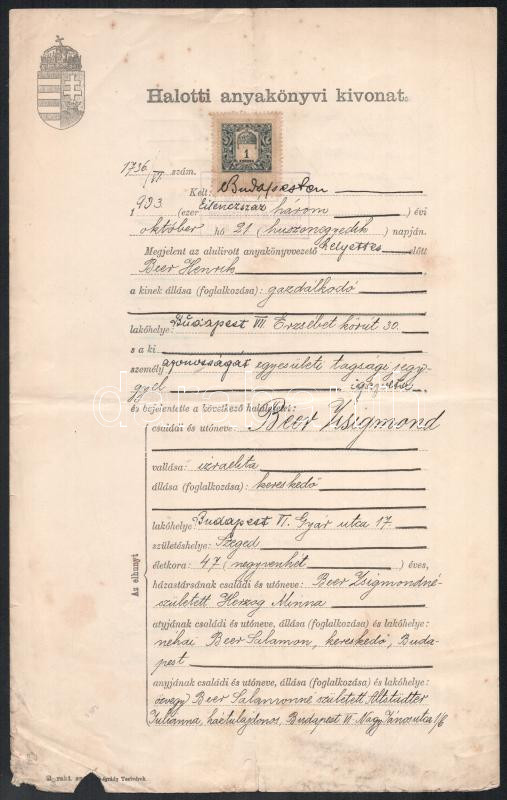 Halotti anyakönyvi kivonat.
1
KORONA
1736/VI szám.
Kelt: Budapesten
1903 (ezer Kilenczszáz három) évi
október hó 21 (huszonegyedik) napján.
Megjelent az alulírott anyakönyvvezető helyettes előtt
Beer Henrik
a kinek állása (foglalkozása): gazdálkodó
lakóhelye: Budapest VII. Erzsébet körút 30.
s a ki
személyazonosságát egyesületi tagsági jegy-
gyel igazolta
és bejelentette a következő halálesetet:
családi és utóneve: Beer Zsigmond
vallása: izraelita
állása (foglalkozása): kereskedő
lakóhelye: Budapest VI. Gyár utca 17.
születéshelye: Szeged
életkora: 47 (negyvenhét) éves,
házastársának családi és utóneve: Beer Zsigmondné
született Herzog Minna
atyjának családi és utóneve, állása (foglalkozása) és lakóhelye:
néhai Beer Salamon, kereskedő, Buda-
pest
anyjának családi és utóneve, állása (foglalkozása) és lakóhelye:
özvegy Beer Salamonné született Altstädter
Julianna, háztulajdonos, Budapest VI. Nagy János utca 1/6
Az elhunyt
rakt. Légrády Testvérek
darabanth